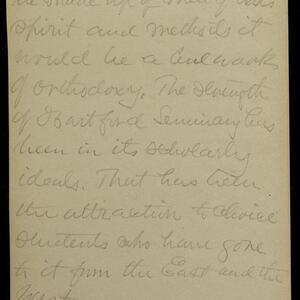 be made up of men of this
spirit and methods it
would be a bulwark
of orthodoxy. The strength
of Hartford Seminary has
been in its scholarly
ideals. That has been
the attraction to choice
students who have gone
to it from the East and the
West